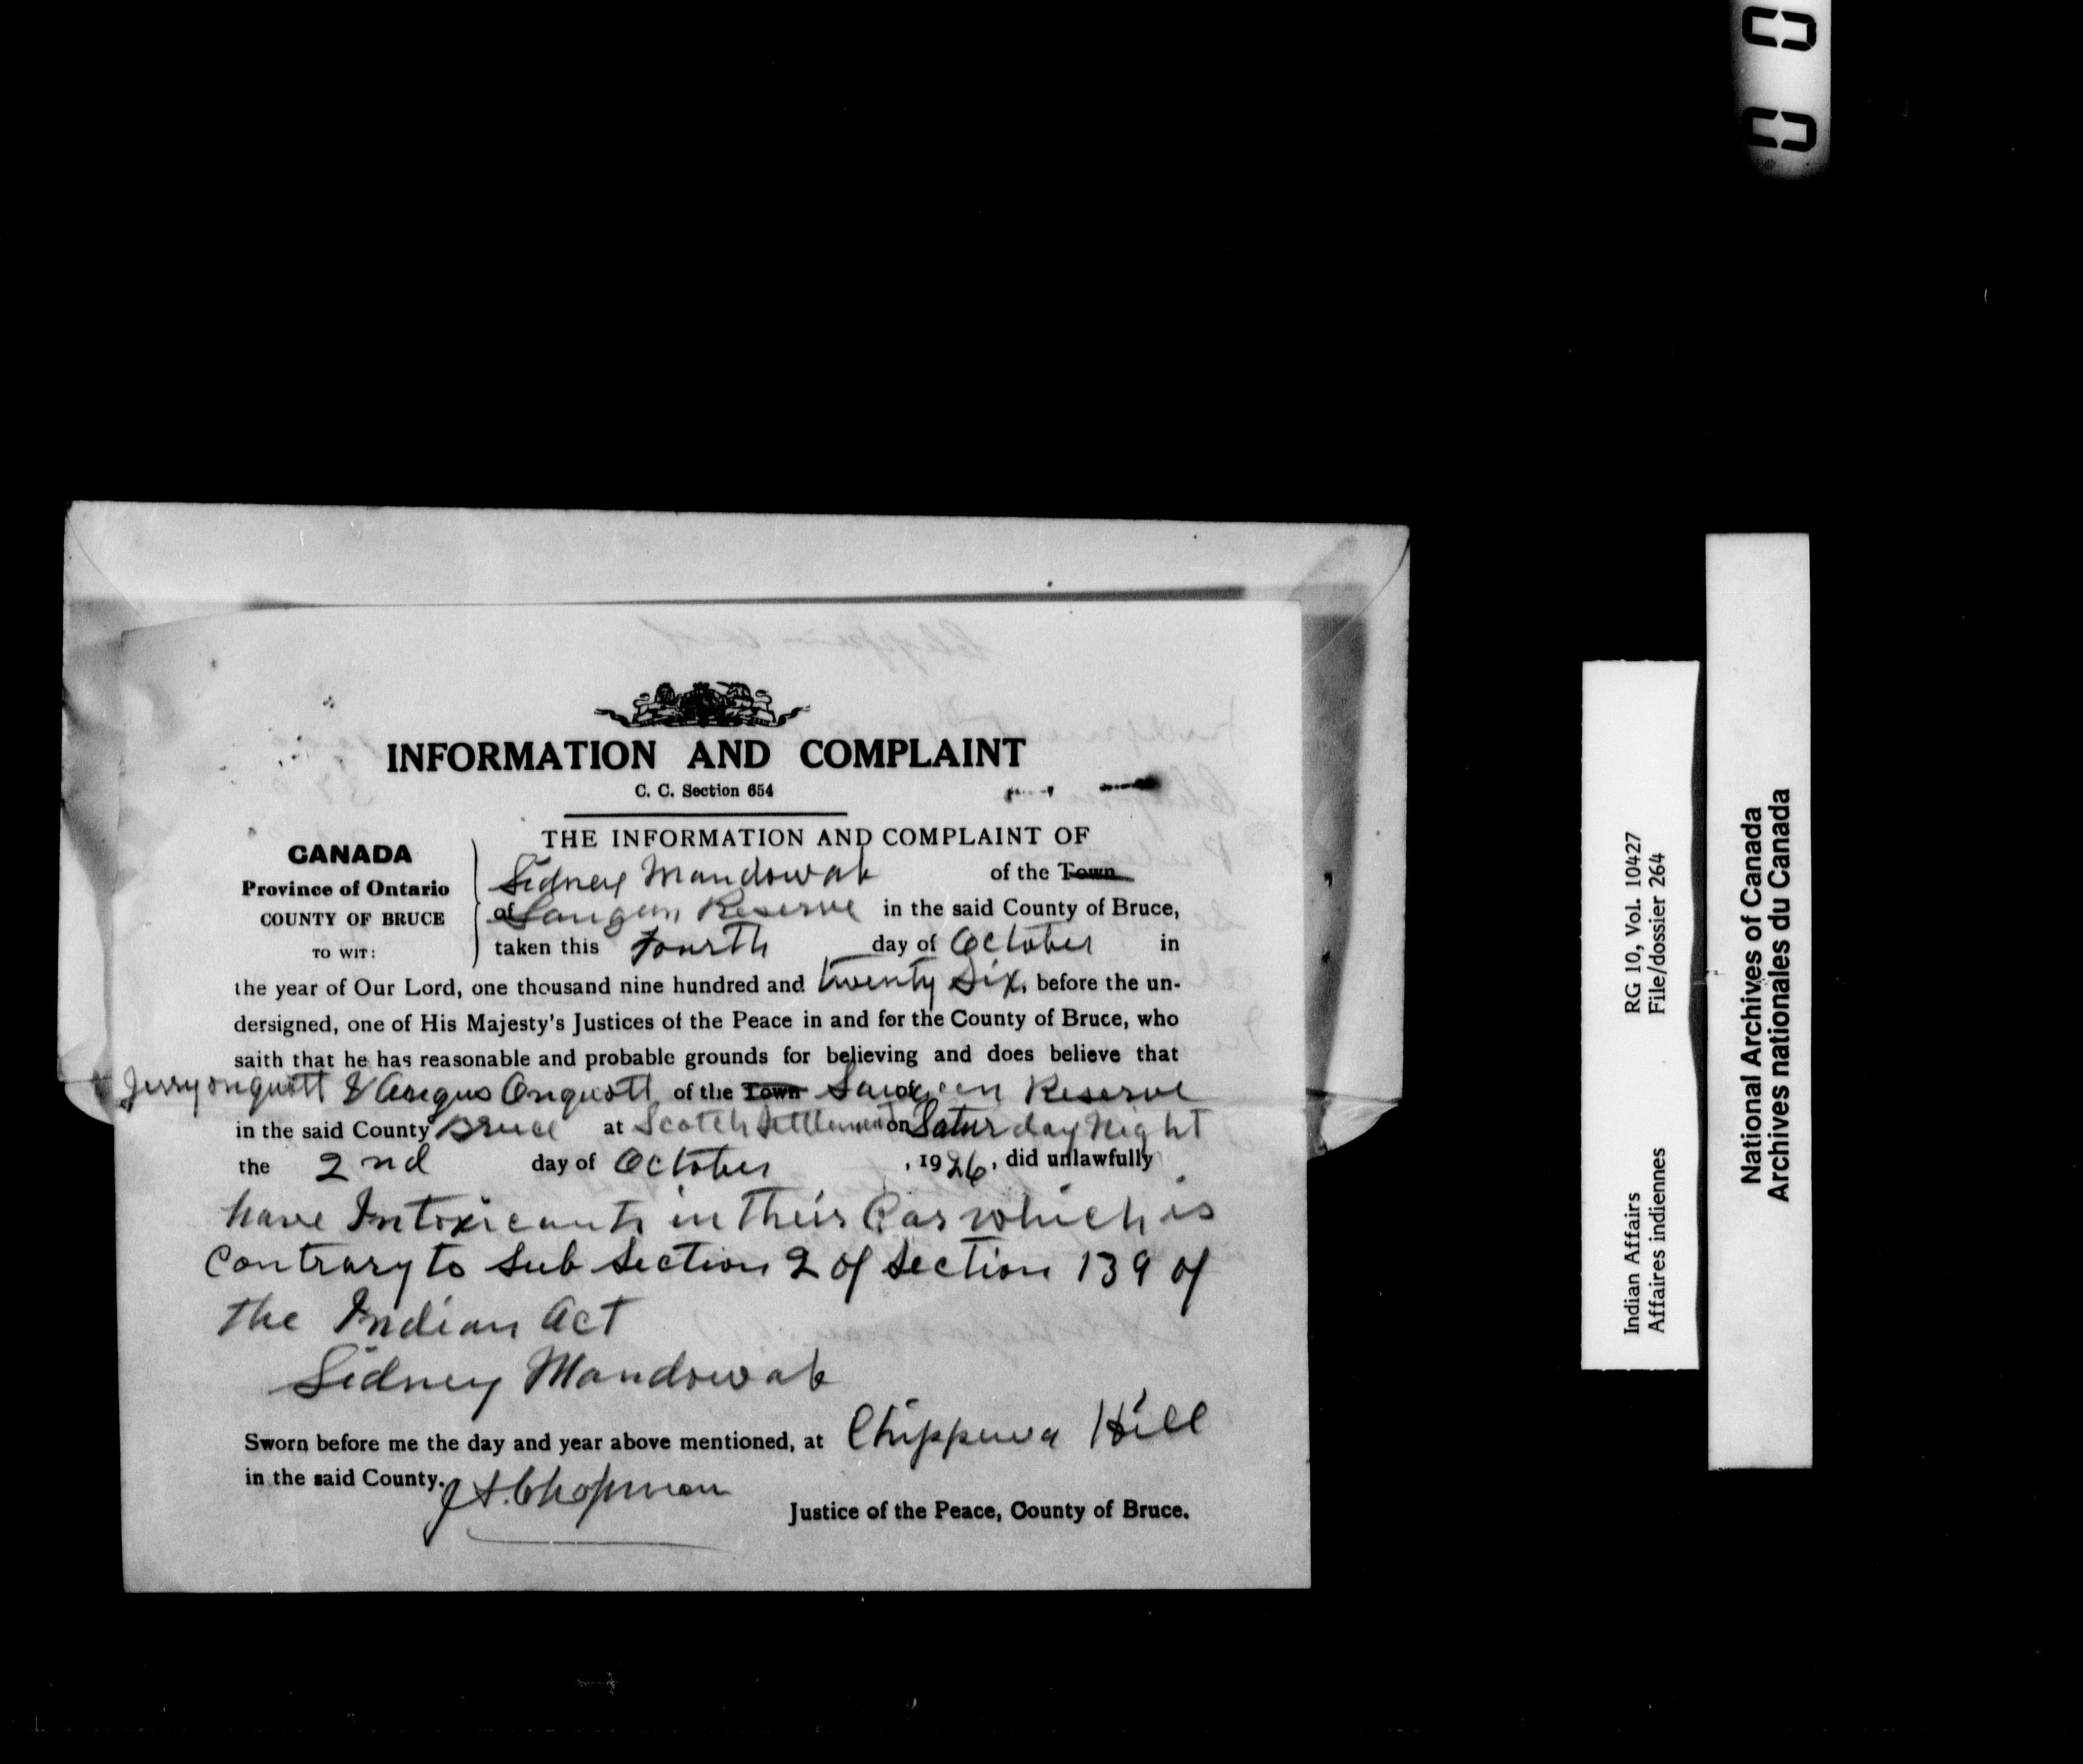 INFORMATION AND COMPLAINT
C. C. Section 654
THE INFORMATION AND COMPLAINT OF
CANADA
Province of Ontario
COUNTY OF BRUCE
TO WIT:
Sidney Mandowab of the Town
of Saugeen Reserve in the said County of Bruce,
taken this Fourth day of October in
the year of Our Lord, one thousand nine hundred and twenty Six, before the un-
dersigned, one of His Majesty's Justices of the Peace in and for the County of Bruce, who
saith that he has reasonable and probable grounds for believing and does believe that
Jerry Onquott & Angus Onquott of the Town of Saugeen Reserve
in the said County Bruce at Scotch Settlement on Saturday Night
the 2nd day of October, 1926, did unlawfully
have Intoxicants in their Car which is
Contrary to Sub Section 2 of Section 139 of
the Indian Act
Sidney Mandowab
Sworn before me the day and year above mentioned, at Chippewa Hill
in the said County.
Chapman
Justice of the Peace, County of Bruce.
Indian Affairs RG 10, Vol. 10427
Affaires indiennes File/dossier 264
National Archives of Canada
Archives nationales du Canada